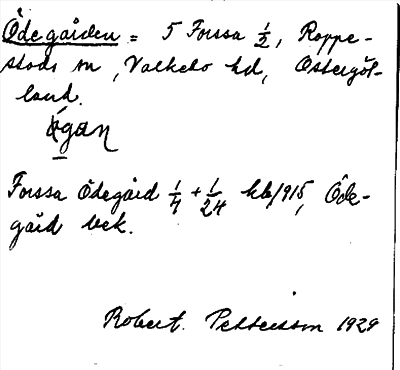 Ödegården = 5 Forssa 1/2, Rappe-
stads sn, Valkebo hd, Östergöt-
land.
ógan
Forssa Ödegård 1/4 + 1/24 kb/1915, Öde-
gård bek.
Robert Pettersson 1929